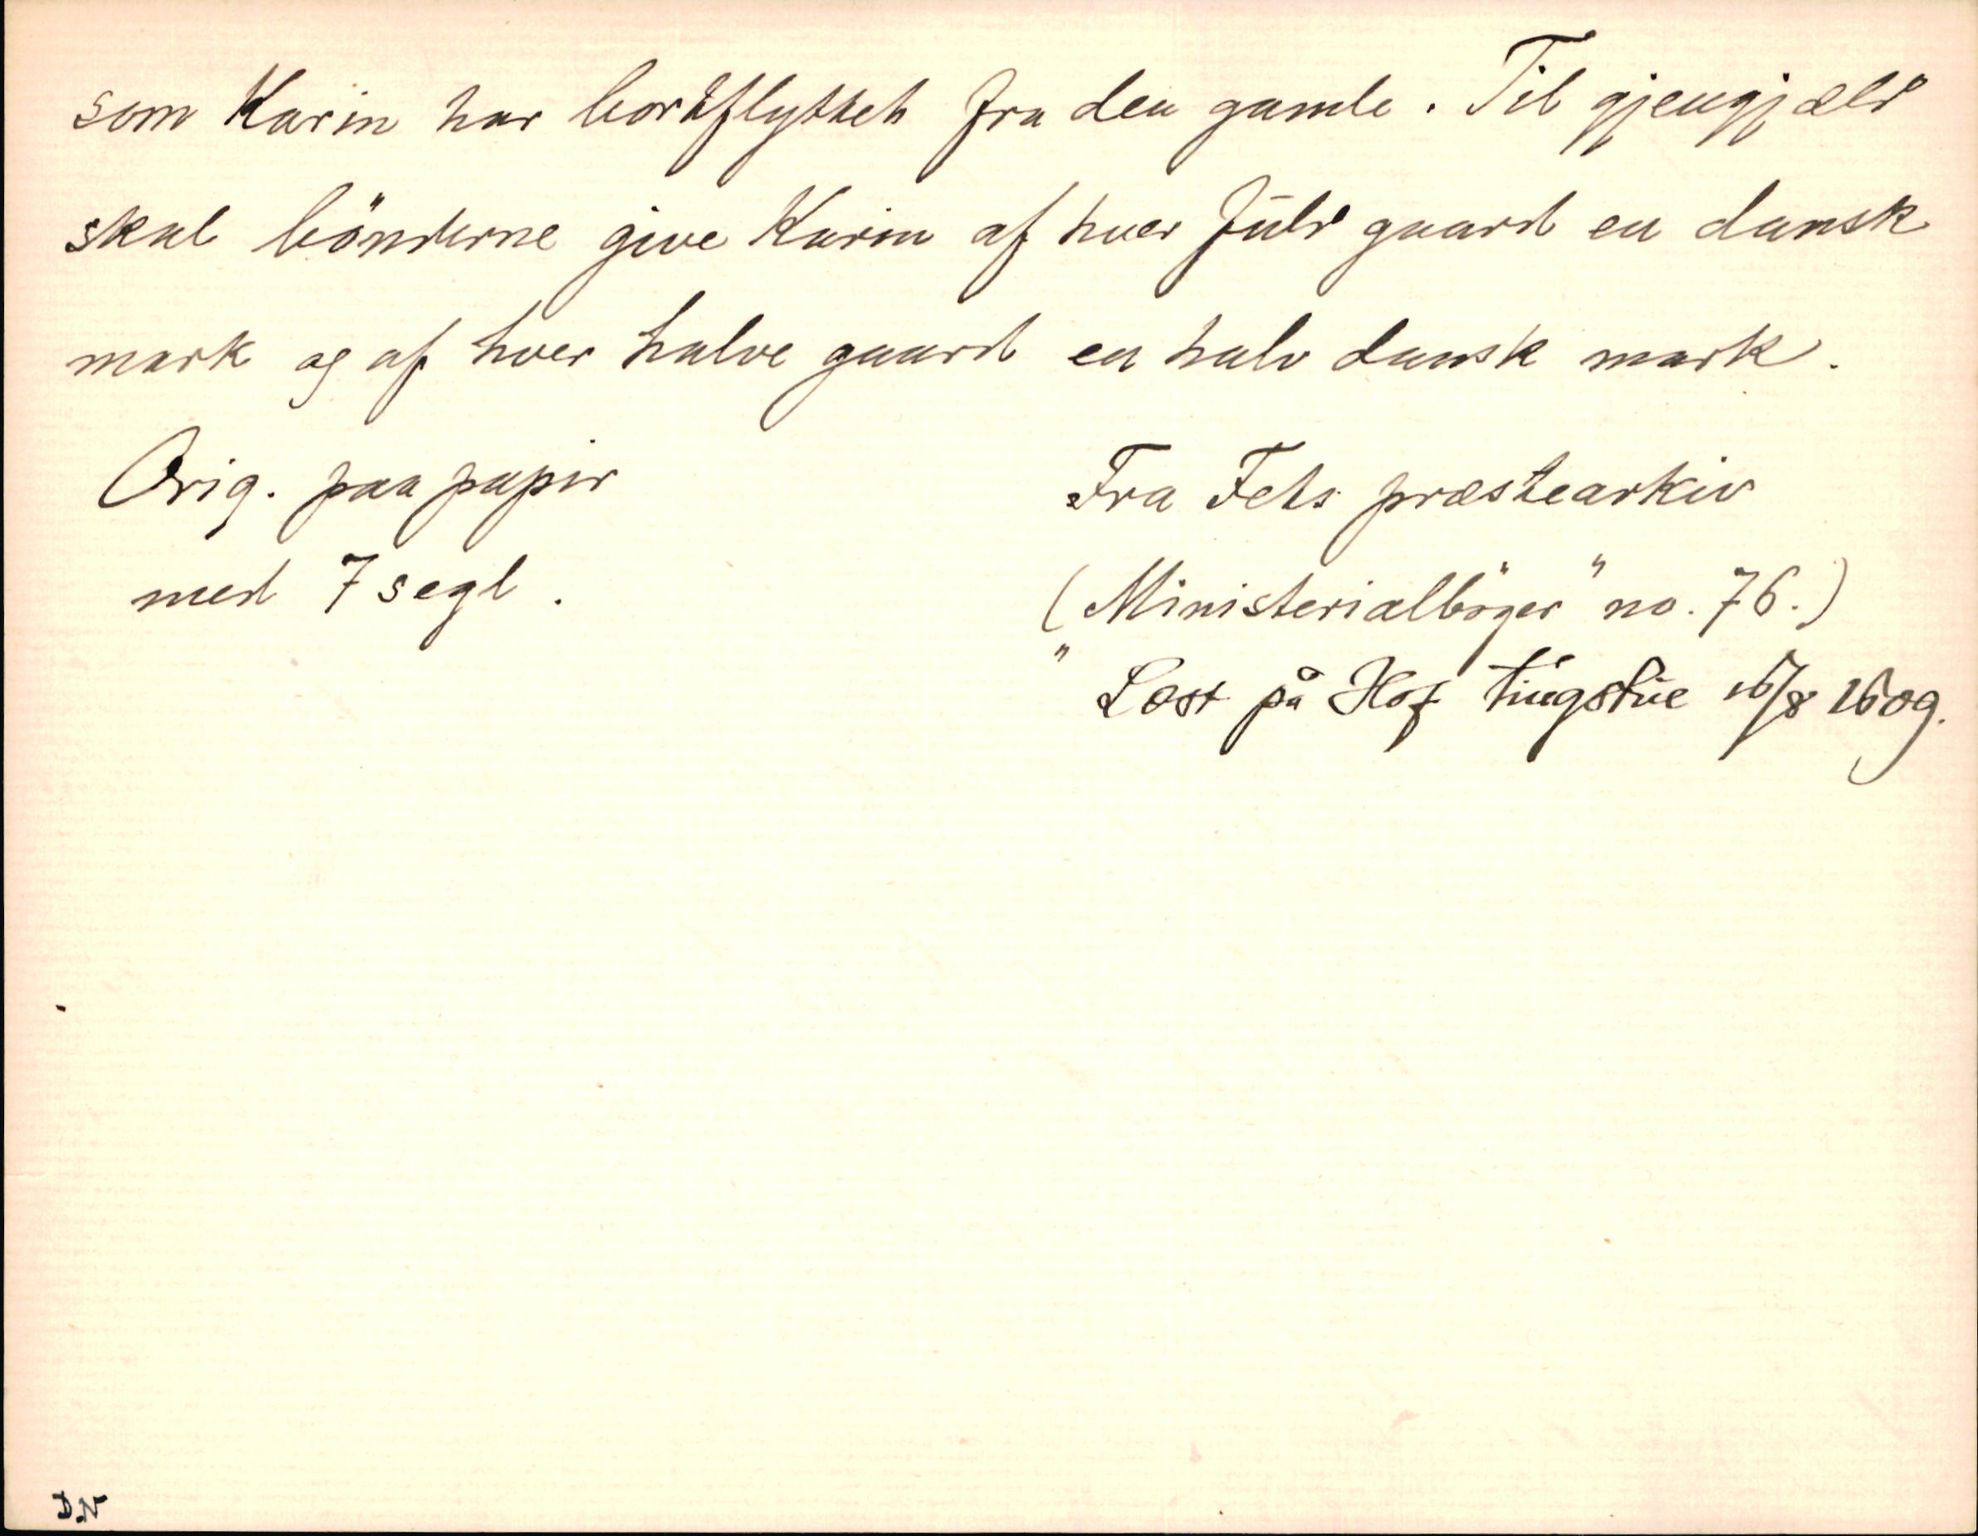 som Karin har bortflyttet fra den gamle. Til gjengjæld
skal bönderne give Karin af hver fuld gaard en dansk
mark og af hver halve gaard en halv dansk mark.
Orig. paa papir
med 7 segl.
Fra Fets præstearkiv
(„Ministerialböger" no. 76.)
Læst på Hof tingstue 16/8 1609.
D.N